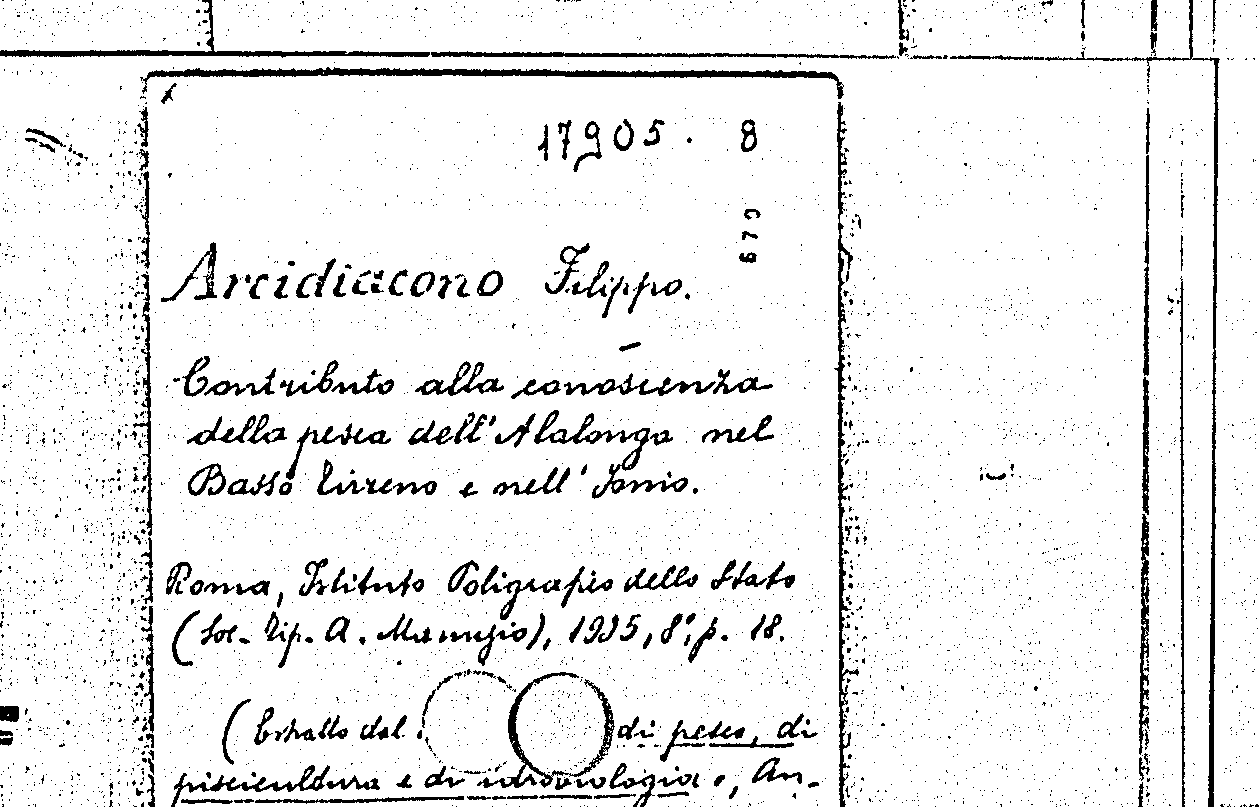 17905. 8
679
Arcidiacono Filippo.
Contributo alla conoscienza
della pesca dell'Alalonga nel
Basso Tirreno e nell' Ionio.
Roma, Istituto Poligrafico dello Stato
(Soc. Tip. A. Manuzio), 1935, 8°, p. 18.
(Estratto dal di pesca, di
piscicultura e di idrobiologia », An-